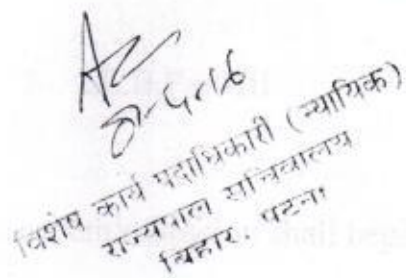 विशेष कार्य पदाधिकारी (न्यायिक)
राज्यपाल सचिवालय
बिहार, पटना
shall